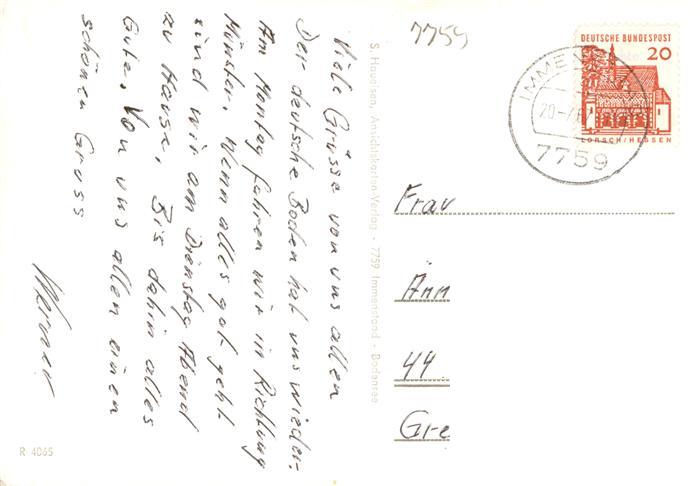 Viele Grüsse von uns allen
Der deutsche Boden hat uns wieder.
Am Montag fahren wir in Richtung
Münster. Wenn alles gut geht
sind wir am Dienstag Abend
zu Hause. Bis dahin alles
Gute. Von uns allen einen
schönen Gruss
Werner
R 4065
S. Hauelsen, Ansichtskarten-Verlag - 7759 Immenstaad - Bodensee
7759
DEUTSCHE BUNDESPOST
20
LORSCH/HESSEN
7759
Frau
Änn
44
Gre